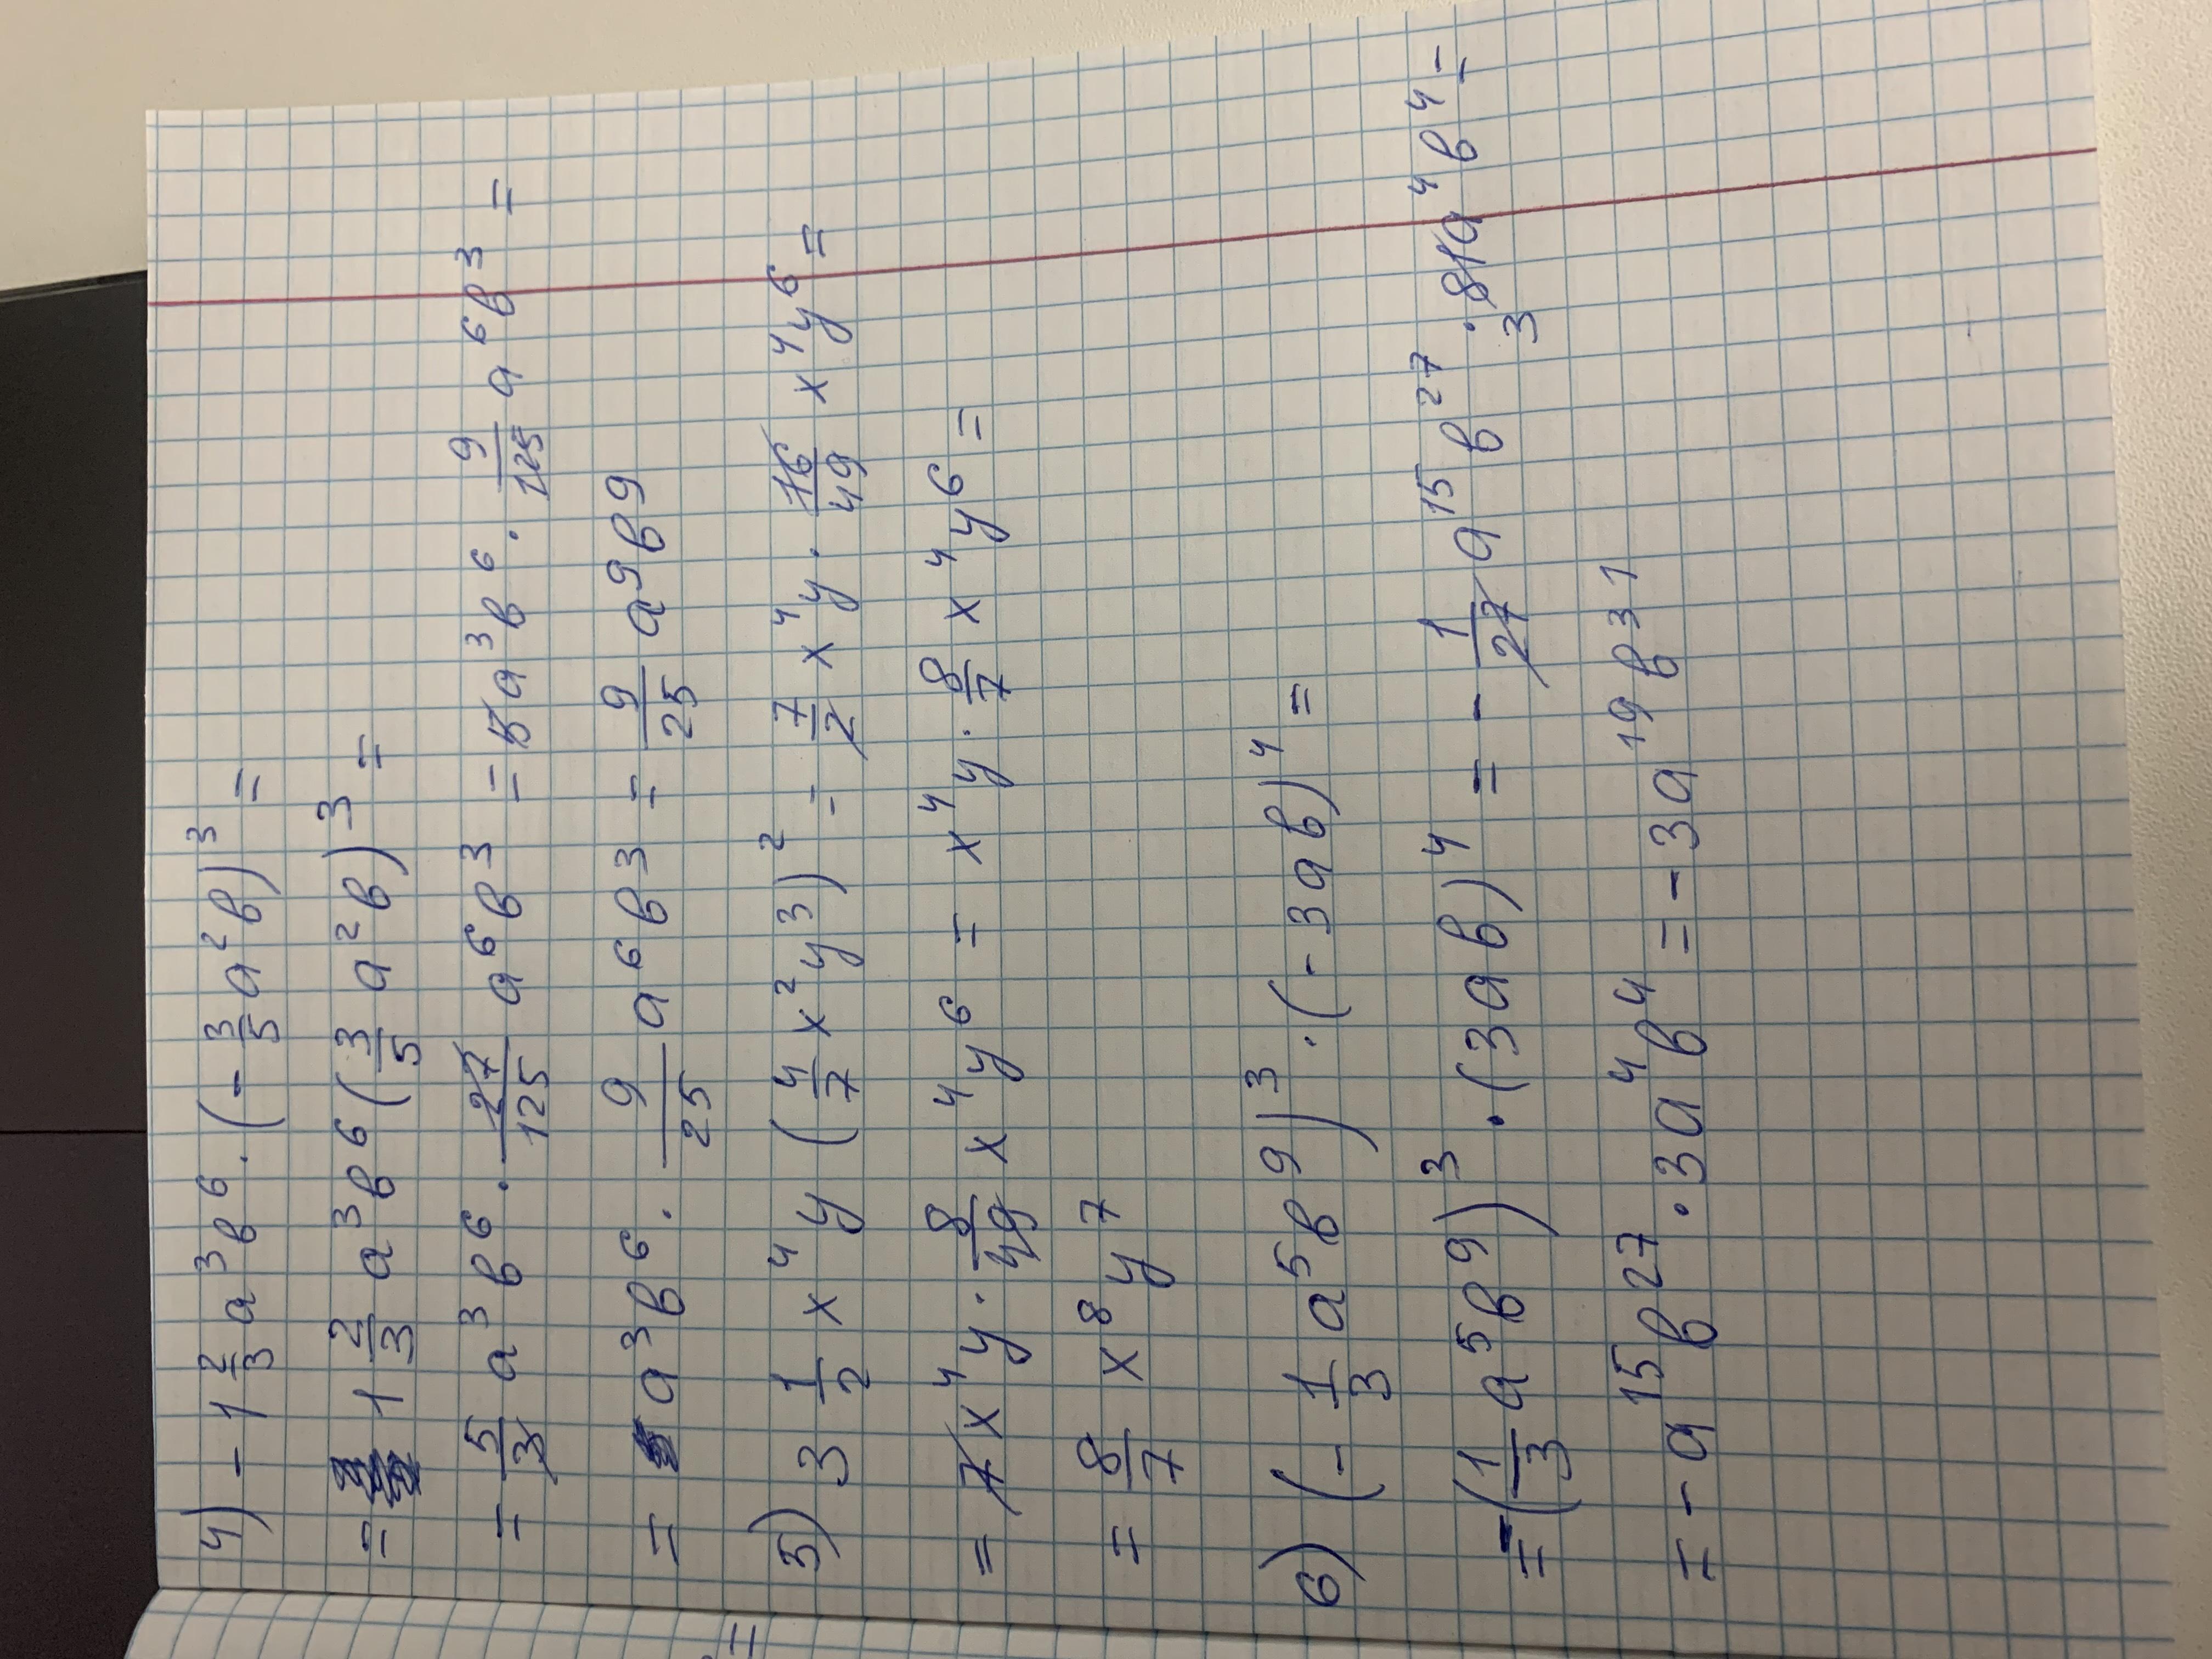 4) - 1 2/3 a³b⁶ · (- 3/5 a²b)³ =
= 1 2/3 a³b⁶ (3/5 a²b)³ =
= 5/3 a³b⁶ · 27/125 a⁶b³ = 5a³b⁶ · 9/125 a⁶b³ =
= a³b⁶ · 9/25 a⁶b³ = 9/25 a⁹b⁹
5) 3 1/2 x⁴y (4/7 x²y³)² = 7/2 x⁴y · 16/49 x⁴y⁶ =
= 7x⁴y · 8/49 x⁴y⁶ = x⁴y · 8/7 x⁴y⁶ =
= 8/7 x⁸y⁷
6) (- 1/3 a⁵b⁹)³ · (- 3ab)⁴ =
= -(1/3 a⁵b⁹)³ · (3ab)⁴ = - 1/27 a¹⁵b²⁷ · 81a⁴b⁴ =
3
= - a¹⁵b²⁷ · 3a⁴b⁴ = - 3a¹⁹b³¹
=